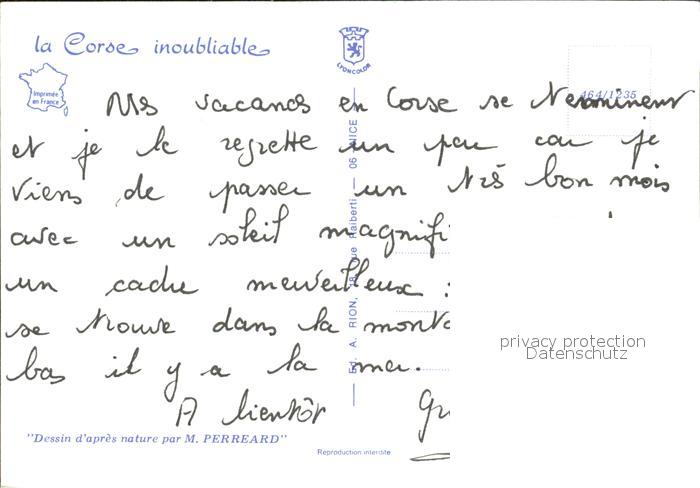 la Corse inoubliable
LYONCOLOR
Imprimée
en France
464/1235
Mes vacances en Corse se terminent
et je le regrette un peu car je
viens de passer un très bon mois
avec un soleil magnifi
un cadre merveilleux :
se trouve dans la monta
bas il y a la mer.
A bientôt
"Dessin d'après nature par M. PERREARD"
Reproduction interdite
Ed. A. RION, 18, rue Raiberti — 06 NICE
privacy protection
Datenschutz